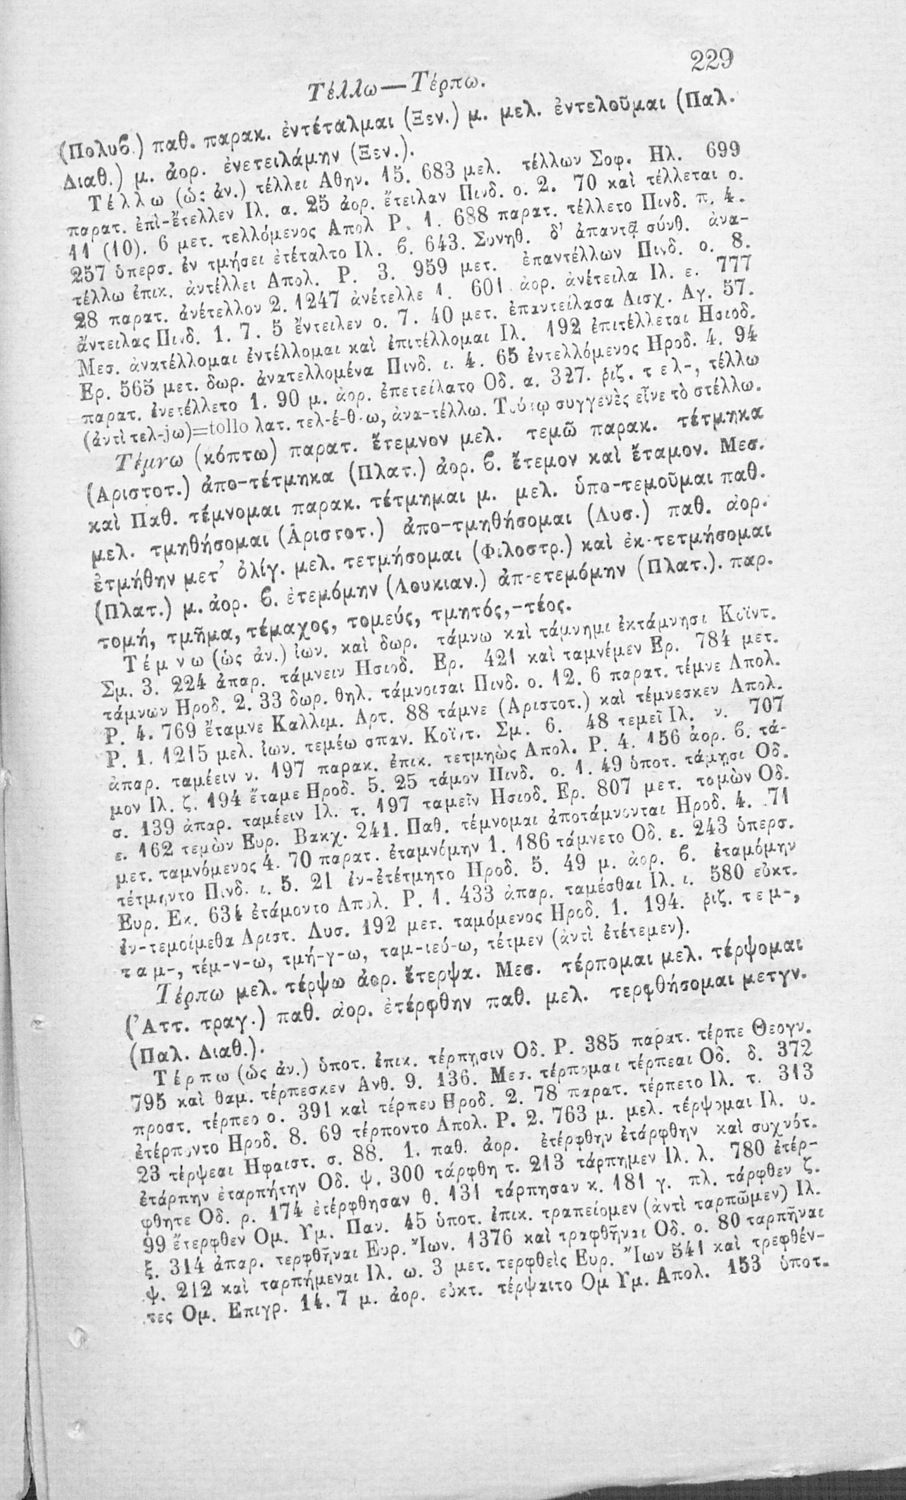 229
Τέλλω—Τέρπω.
(Πολυβ.) παθ. παρακ. ἐντέταλμαι (Ξεν.) μ. μελ. ἐντελοῦμαι (Παλ.
Διαθ.) μ. ἀορ. ἐνετειλάμην (Ξεν.).
Τέλλω (ὡς ἀν.) τέλλει Αθην. 15. 683 μελ. τέλλων Σοφ. Ηλ. 699
παρατ. ἐπὶ-ἔτελλεν Ιλ. α. 25 ἀορ. ἔτειλαν Πινδ. ο. 2. 70 καὶ τέλλεται ο.
11 (10). 6 μετ. τελλόμενος Απολ Ρ. 1. 688 παρατ. τέλλετο Πινδ. π. 4.
257 ὑπερσ. ἐν τμήσει ἐτέταλτο Ιλ. β. 643. Συνηθ. δ' ἀπαντᾷ σύνθ. ἀνα-
τέλλω ἐπικ. ἀντέλλει Απολ. Ρ. 3. 959 μετ. ἐπαντέλλων Πινδ. ο. 8.
28 παρατ. ἀνέτελλον 2. 1247 ἀνέτελλε 1. 601 ἀορ. ἀνέτειλα Ιλ. ε. 777
ἄντειλας Πινδ. 1. 7. 5 ἔντειλεν ο. 7. 40 μετ. ἐπαντείλασα Αισχ. Αγ. 57.
Μεσ. ἀνατέλλομαι ἐντέλλομαι καὶ ἐπιτέλλομαι Ιλ. 192 ἐπιτέλλεται Ησιοδ.
Ερ. 565 μετ. δωρ. ἀνατελλομένα Πινδ. ι. 4. 65 ἐντελλόμενος Ηροδ. 4. 94
παρατ. ἐνετέλλετο 1. 90 μ. ἀορ. ἐπετείλατο Οδ. α. 327. ῥιζ. τελ-, τέλλω
(ἀντὶ τελ-jω)=tollo λατ. τελ-έ-θ-ω, ἀνα-τέλλω. Τούτῳ συγγενὲς εἶνε τὸ στέλλω.
Τέμνω (κόπτω) παρατ. ἔτεμνον μελ. τεμῶ παρακ. τέτμηκα
(Αριστοτ.) ἀπο-τέτμηκα (Πλατ.) ἀορ. β. ἔτεμον καὶ ἔταμον. Μεσ.
καὶ Παθ. τέμνομαι παρακ. τέτμημαι μ. μελ. ὑπο-τεμοῦμαι παθ.
μελ. τμηθήσομαι (Ἀριστοτ.) ἀπο-τμηθήσομαι (Λυσ.) παθ. ἀορ.
ἐτμήθην μετ' ὀλίγ. μελ. τετμήσομαι (Φιλοστρ.) καὶ ἐκ-τετμήσομαι
(Πλατ.) μ. ἀορ. β. ἐτεμόμην (Λουκιαν.) ἀπ-ετεμόμην (Πλατ.). παρ.
τομή, τμῆμα, τέμαχος, τομεύς, τμητός,-τέος.
Τέμνω (ὡς ἀν.) ἰων. καὶ δωρ. τάμνω καὶ τάμνημι ἐκτάμνησι Κοϊντ.
Σμ. 3. 224 ἀπαρ. τάμνειν Ησιοδ. Ερ. 421 καὶ ταμνέμεν Ερ. 784 μετ.
τάμνων Ηροδ. 2. 33 δωρ. θηλ. τάμνοισαι Πινδ. ο. 12. 6 παρατ. τέμνε Απολ.
Ρ. 4. 769 ἔταμνε Καλλιμ. Αρτ. 88 τάμνε (Αριστοτ.) καὶ τέμνεσκεν Απολ.
Ρ. 1. 1215 μελ. ἰων. τεμέω σπαν. Κοϊντ. Σμ. 6. 48 τεμεῖ Ιλ. ν. 707
ἀπαρ. ταμέειν ν. 197 παρακ. ἐπικ. τετμηὼς Απολ. Ρ. 4. 156 ἀορ. β. τά-
μον Ιλ. ζ. 194 ἔταμε Ηροδ. 5. 25 τάμον Πινδ. ο. 1. 49 ὑποτ. τάμησι Οδ.
σ. 139 ἀπαρ. ταμέειν Ιλ. τ. 197 ταμεῖν Ησιοδ. Ερ. 807 μετ. ταμὼν Οδ.
ε. 162 τεμὼν Ευρ. Βακχ. 241. Παθ. τέμνομαι ἀποτάμνονται Ηροδ. 4. 71
μετ. ταμνόμενος 4. 70 παρατ. ἐταμνόμην 1. 186 τάμνετο Οδ. ε. 243 ὑπερσ.
τέτμηντο Πινδ. ι. 5. 21 ἐν-ετέτμητο Ηροδ. 5. 49 μ. ἀορ. β. ἐταμόμην
Ευρ. Εκ. 634 ἐτάμοντο Απολ. Ρ. 1. 433 ἀπαρ. ταμέσθαι Ιλ. ι. 580 εὐκτ.
ἐν-τεμοίμεθα Αριστ. Λυσ. 192 μετ. ταμόμενος Ηροδ. 1. 194. ῥιζ. τεμ-,
ταμ-, τέμ-ν-ω, τμή-γ-ω, ταμ-ιεύ-ω, τέτμεν (ἀντὶ ἐτέτεμεν).
Τέρπω μελ. τέρψω ἀορ. ἔτερψα. Μεσ. τέρπομαι μελ. τέρψομαι
(Ἀττ. τραγ.) παθ. ἀορ. ἐτέρφθην παθ. μελ. τερφθήσομαι μετγν.
(Παλ. Διαθ.).
Τέρπω (ὡς ἀν.) ὑποτ. ἐπικ. τέρπησιν Οδ. Ρ. 385 παρατ. τέρπε Θεογν.
795 καὶ θαμ. τέρπεσκεν Ανθ. 9. 136. Μεσ. τέρπομαι τέρπεαι Οδ. δ. 372
προστ. τέρπεο ο. 391 καὶ τέρπευ Ηροδ. 2. 78 παρατ. τέρπετο Ιλ. τ. 313
ἐτέρποντο Ηροδ. 8. 69 τέρποντο Απολ. Ρ. 2. 763 μ. μελ. τέρψομαι Ιλ. υ.
23 τέρψεαι Ηφαιστ. σ. 88. 1. παθ. ἀορ. ἐτέρφθην ἐτάρφθην καὶ συχνότ.
ἐτάρπην ἐταρπήτην Οδ. ψ. 300 τάρφθη τ. 213 τάρπημεν Ιλ. λ. 780 ἐτέρ-
φθητε Οδ. ρ. 174 ἐτέρφθησαν θ. 131 τάρπησαν κ. 181 γ. πλ. τάρφθεν ζ.
99 ἔτερφθεν Ομ. Υμ. Παν. 45 ὑποτ. ἐπικ. τραπείομεν (ἀντὶ ταρπῶμεν) Ιλ.
ξ. 314 ἀπαρ. τερφθῆναι Ευρ. Ἴων. 1376 καὶ τραφθῆναι Οδ. ο. 80 ταρπῆναι
ψ. 212 καὶ ταρπήμεναι Ιλ. ω. 3 μετ. τερφθεὶς Ευρ. Ἴων 541 καὶ τρεφθέν-
τες Ομ. Επιγρ. 14. 7 μ. ἀορ. εὐκτ. τέρψαιτο Ομ Υμ. Απολ. 153 ὑποτ.